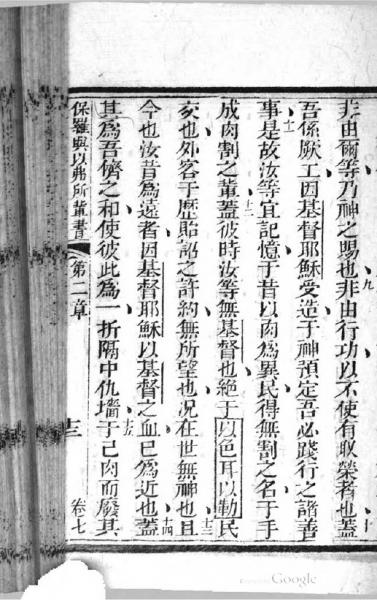 非由爾等乃神之賜也非由行功以不使有取榮者也蓋
九
十
吾係厥工因基督耶穌受造于神預定吾必踐行之諸善
事是故汝等宜記憶于昔以肉為異民得無割之名于手
十一
成肉割之輩蓋彼時汝等無基督也絕于以色耳以勒民
十二
亥也外客于歷詒詔之許約無所望也况在世無神也且
十三
今也汝昔為遠者因基督耶穌以基督之血已為近也蓋
十四
其為吾儕之和使彼此為一折隔中仇墻于己肉而廢其
十五
保羅與以弗所輩書 第二章 十三 卷七
Google